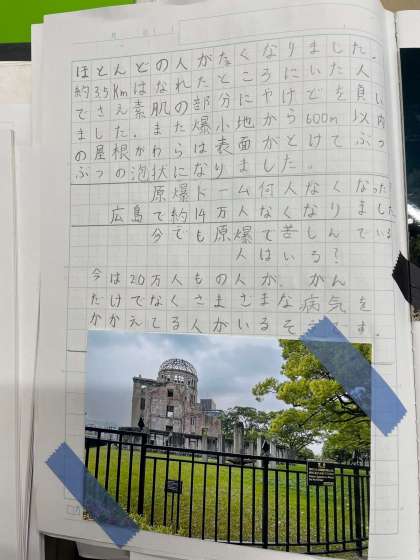 ほとんどの人がなくなりました。
約3.5Kmはなれたところにいた人
でさえ素肌の部分にやけどを負い
ました。また爆心地から600m以内
の屋根がわらは表面がとけてぶつ
ぶつの泡状になりました。
原爆ドーム何人なくなった
広島で約14万人なくなりました
今でも原爆で苦しんでいる
人はいる?
今は20万人もの人が、がん
だけでなくさまざまな病気を
かかえてる人がいるそ す。